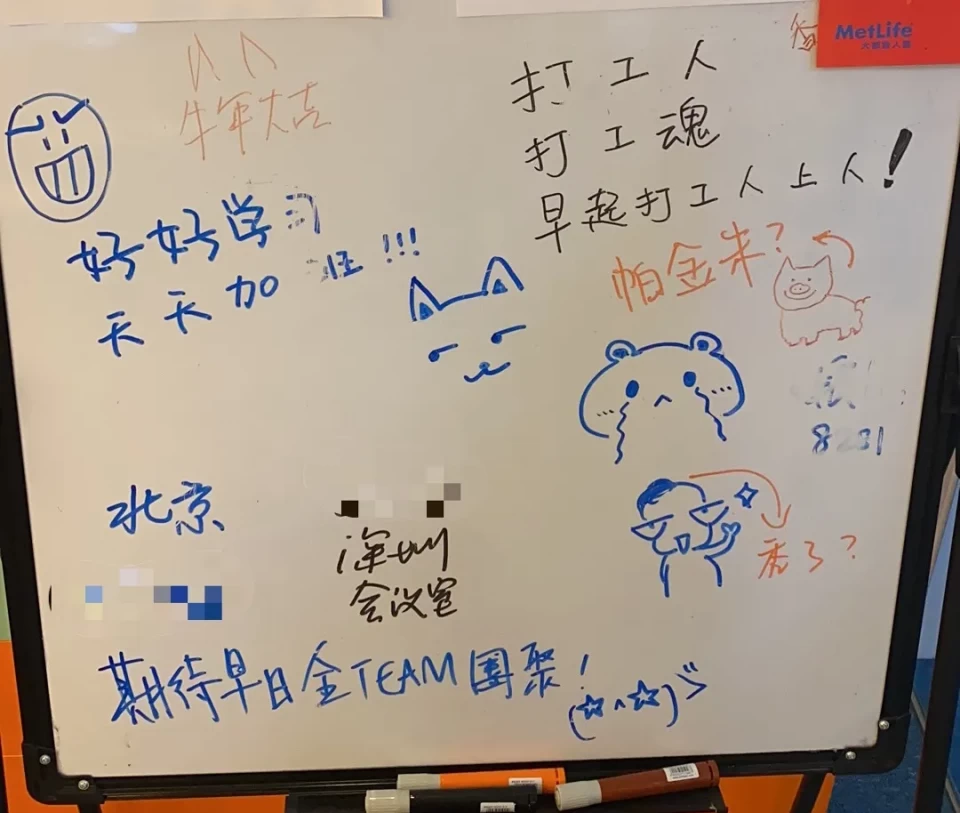 MetLife
大都会人寿
牛年大吉
打工人
打工魂
早起打工人上人！
好好学习
天天加!!!
帕金朱?
北京
深圳
会议室
秃了?
期待早日全TEAM团聚!
(☆^☆)